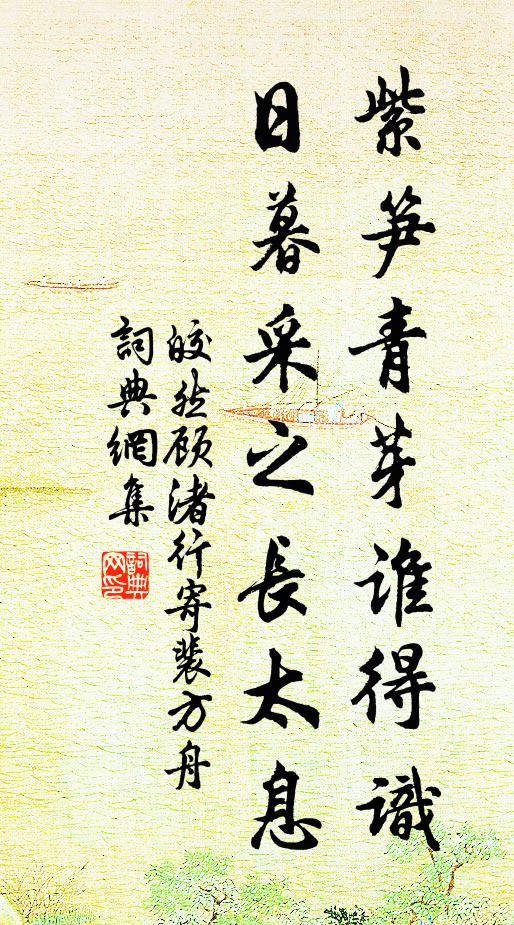 紫笋青芽誰得識
日暮采之長太息
皎然顾渚行寄裴方舟
詞典網集
詞典网印